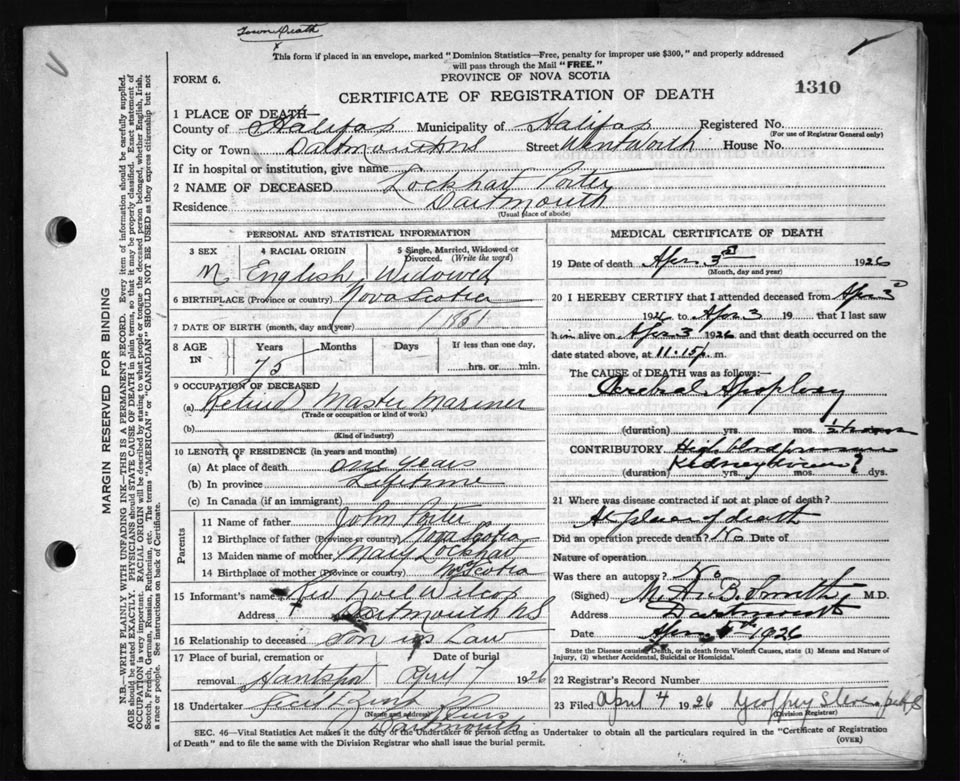 Town Death
This form if placed in an envelope, marked "Dominion Statistics—Free, penalty for improper use $300," and properly addressed
will pass through the Mail "FREE."
FORM 6.
PROVINCE OF NOVA SCOTIA
CERTIFICATE OF REGISTRATION OF DEATH
1310
1 PLACE OF DEATH—
County of Halifax Municipality of Halifax Registered No.
(For use of Registrar General only)
City or Town Dartmouth NS Street Wentworth House No.
If in hospital or institution, give name
2 NAME OF DECEASED Lockhart Porter
Residence Dartmouth
(Usual place of abode)
PERSONAL AND STATISTICAL INFORMATION
3 SEX 4 RACIAL ORIGIN 5 Single, Married, Widowed or
Divorced. (Write the word)
M English Widowed
6 BIRTHPLACE (Province or country) Nova Scotia
7 DATE OF BIRTH (month, day and year) 1851
8 AGE IN Years Months Days If less than one day,
75 hrs. or min.
9 OCCUPATION OF DECEASED
(a) Retired Master Mariner
(Trade or occupation or kind of work)
(b)
(Kind of industry)
10 LENGTH OF RESIDENCE (in years and months)
(a) At place of death years
(b) In province Lifetime
(c) In Canada (if an immigrant)
Parents
11 Name of father John Porter
12 Birthplace of father (Province or country) Nova Scotia
13 Maiden name of mother Mary Lockhart
14 Birthplace of mother (Province or country) Nova Scotia
15 Informant's name Rev Noel Wilcox
Address Dartmouth NS
16 Relationship to deceased Son in Law
17 Place of burial, cremation or Date of burial
removal Hantsport April 7 1926
18 Undertaker
(Name and address)
Dartmouth
MEDICAL CERTIFICATE OF DEATH
19 Date of death Apr 3rd 1926
(Month, day and year)
20 I HEREBY CERTIFY that I attended deceased from Apr 3
1926 to Apr 3 19 that I last saw
h im alive on Apr 3 1926 and that death occurred on the
date stated above, at 11.15 p. m.
The CAUSE of DEATH was as follows:—
Cerebral Apoplexy
(duration) yrs. mos.
CONTRIBUTORY High blood pressure
Kidney
(duration) yrs. mos. dys.
21 Where was disease contracted if not at place of death?
At place of death
Did an operation precede death? No Date of
Nature of operation
Was there an autopsy? No
(Signed) B. Smith M.D.
Address Dartmouth
Date Apr 1926
State the Disease causing Death, or in death from Violent Causes, state (1) Means and Nature of
Injury, (2) whether Accidental, Suicidal or Homicidal.
22 Registrar's Record Number
23 Filed April 4 1926 Geoffrey
(Division Registrar)
SEC. 46—Vital Statistics Act makes it the duty of the Undertaker or person acting as Undertaker to obtain all the particulars required in the "Certificate of Registration
of Death" and to file the same with the Division Registrar who shall issue the burial permit. (OVER)
MARGIN RESERVED FOR BINDING
N.B.—WRITE PLAINLY WITH UNFADING INK—THIS IS A PERMANENT RECORD. Every item of information should be carefully supplied.
AGE should be stated EXACTLY. PHYSICIANS should STATE CAUSE OF DEATH in plain terms, so that it may be properly classified. Exact statement of
OCCUPATION is very important. RACIAL ORIGIN will be described by stating to what people or tongue the deceased person belonged, whether English, Irish,
Scotch, French, German, Russian, Ruthenian, etc. The terms "AMERICAN" or "CANADIAN" SHOULD NOT BE USED as they express citizenship but not
a race or people. See instructions on back of Certificate.